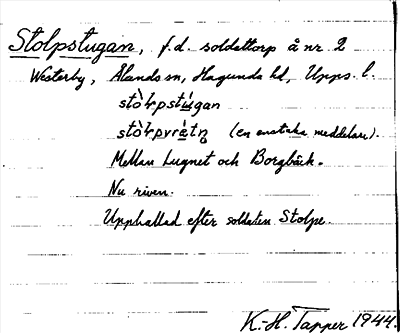 Stolpstugan, f.d. soldattorp å nr 2
Westerby, Ålands sn, Hagunda hd, Upps. l.
stòlpstúgan
stòlpvrétn (en enstaka meddelare).
Mellan Lugnet och Borgbäck.
Nu riven.
Uppkallad efter soldaten Stolpe.
K.-H. Tapper 1944.